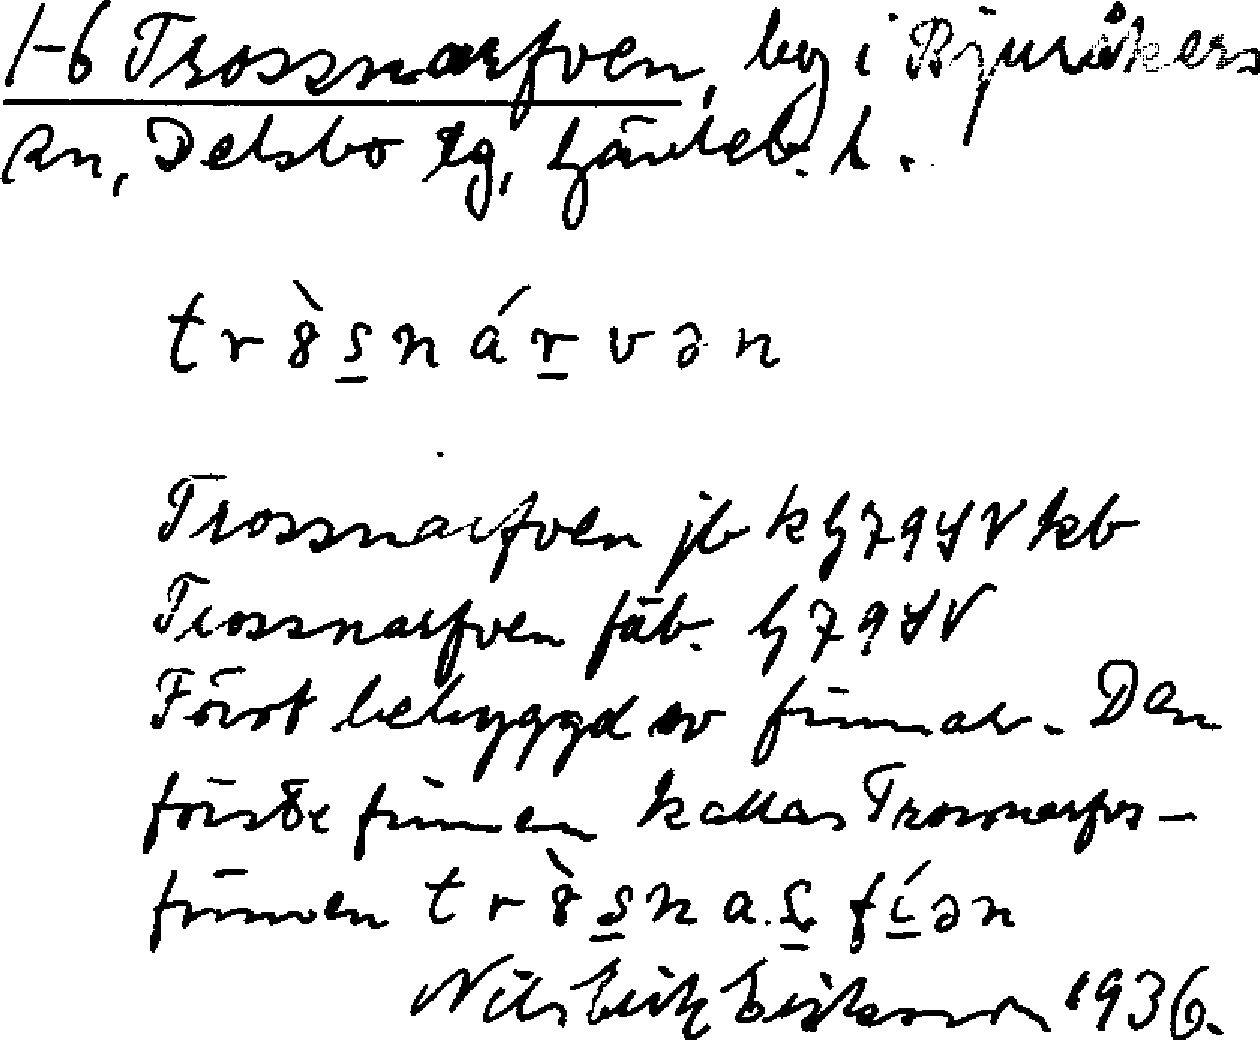 1-6 Trossnarfven, by i Bjuråkers
sn, Delsbo tg, Gävleb. l.
tr8̀s̲nár̲vən
Trossnarfven jb k G 79 SV kb
Trossnarfven fäb. G 79 SV
Först bebyggd av finnar. Den
förste finnen kallas Trossnarfvs-
finnen tr8̀s̲nas̲fí̲ən
Nils Erik Eriksson 1936.